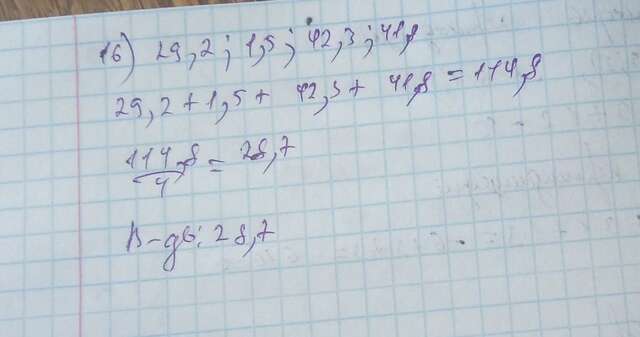 16) 29,2; 1,5; 42,3; 41,8
29,2 + 1,5 + 42,3 + 41,8 = 114,8
114,8/4 = 28,7
В-дь: 28,7